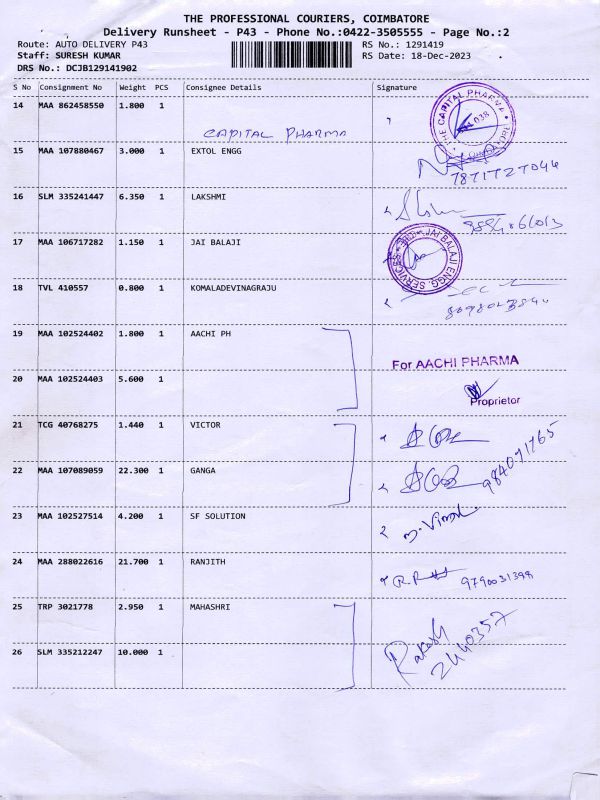 THE PROFESSIONAL COURIERS, COIMBATORE
Delivery Runsheet - P43 - Phone No.:0422-3505555 - Page No.:2
Route: AUTO DELIVERY P43 RS No.: 1291419
Staff: SURESH KUMAR RS Date: 18-Dec-2023
DRS No.: DCJB129141902
S No Consignment No Weight PCS Consignee Details Signature
14 MAA 862458550 1.800 1
CAPITAL PHARMA
THE CAPITAL PHARMA
15 MAA 107880467 3.000 1 EXTOL ENGG
7871727046
16 SLM 335241447 6.350 1 LAKSHMI
17 MAA 106717282 1.150 1 JAI BALAJI
JAI BALAJI ENGG. SERVICES
18 TVL 410557 0.800 1 KOMALADEVINAGRAJU
19 MAA 102524402 1.800 1 AACHI PH
For AACHI PHARMA
20 MAA 102524403 5.600 1
Proprietor
21 TCG 40768275 1.440 1 VICTOR
22 MAA 107089059 22.300 1 GANGA
23 MAA 102527514 4.200 1 SF SOLUTION
24 MAA 288022616 21.700 1 RANJITH
9790031398
25 TRP 3021778 2.950 1 MAHASHRI
Rakesh
2440357
26 SLM 335212247 10.000 1